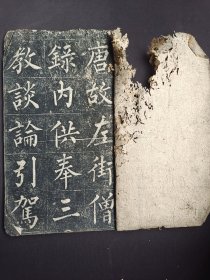 唐故左街僧
錄內供奉三
教談論引駕